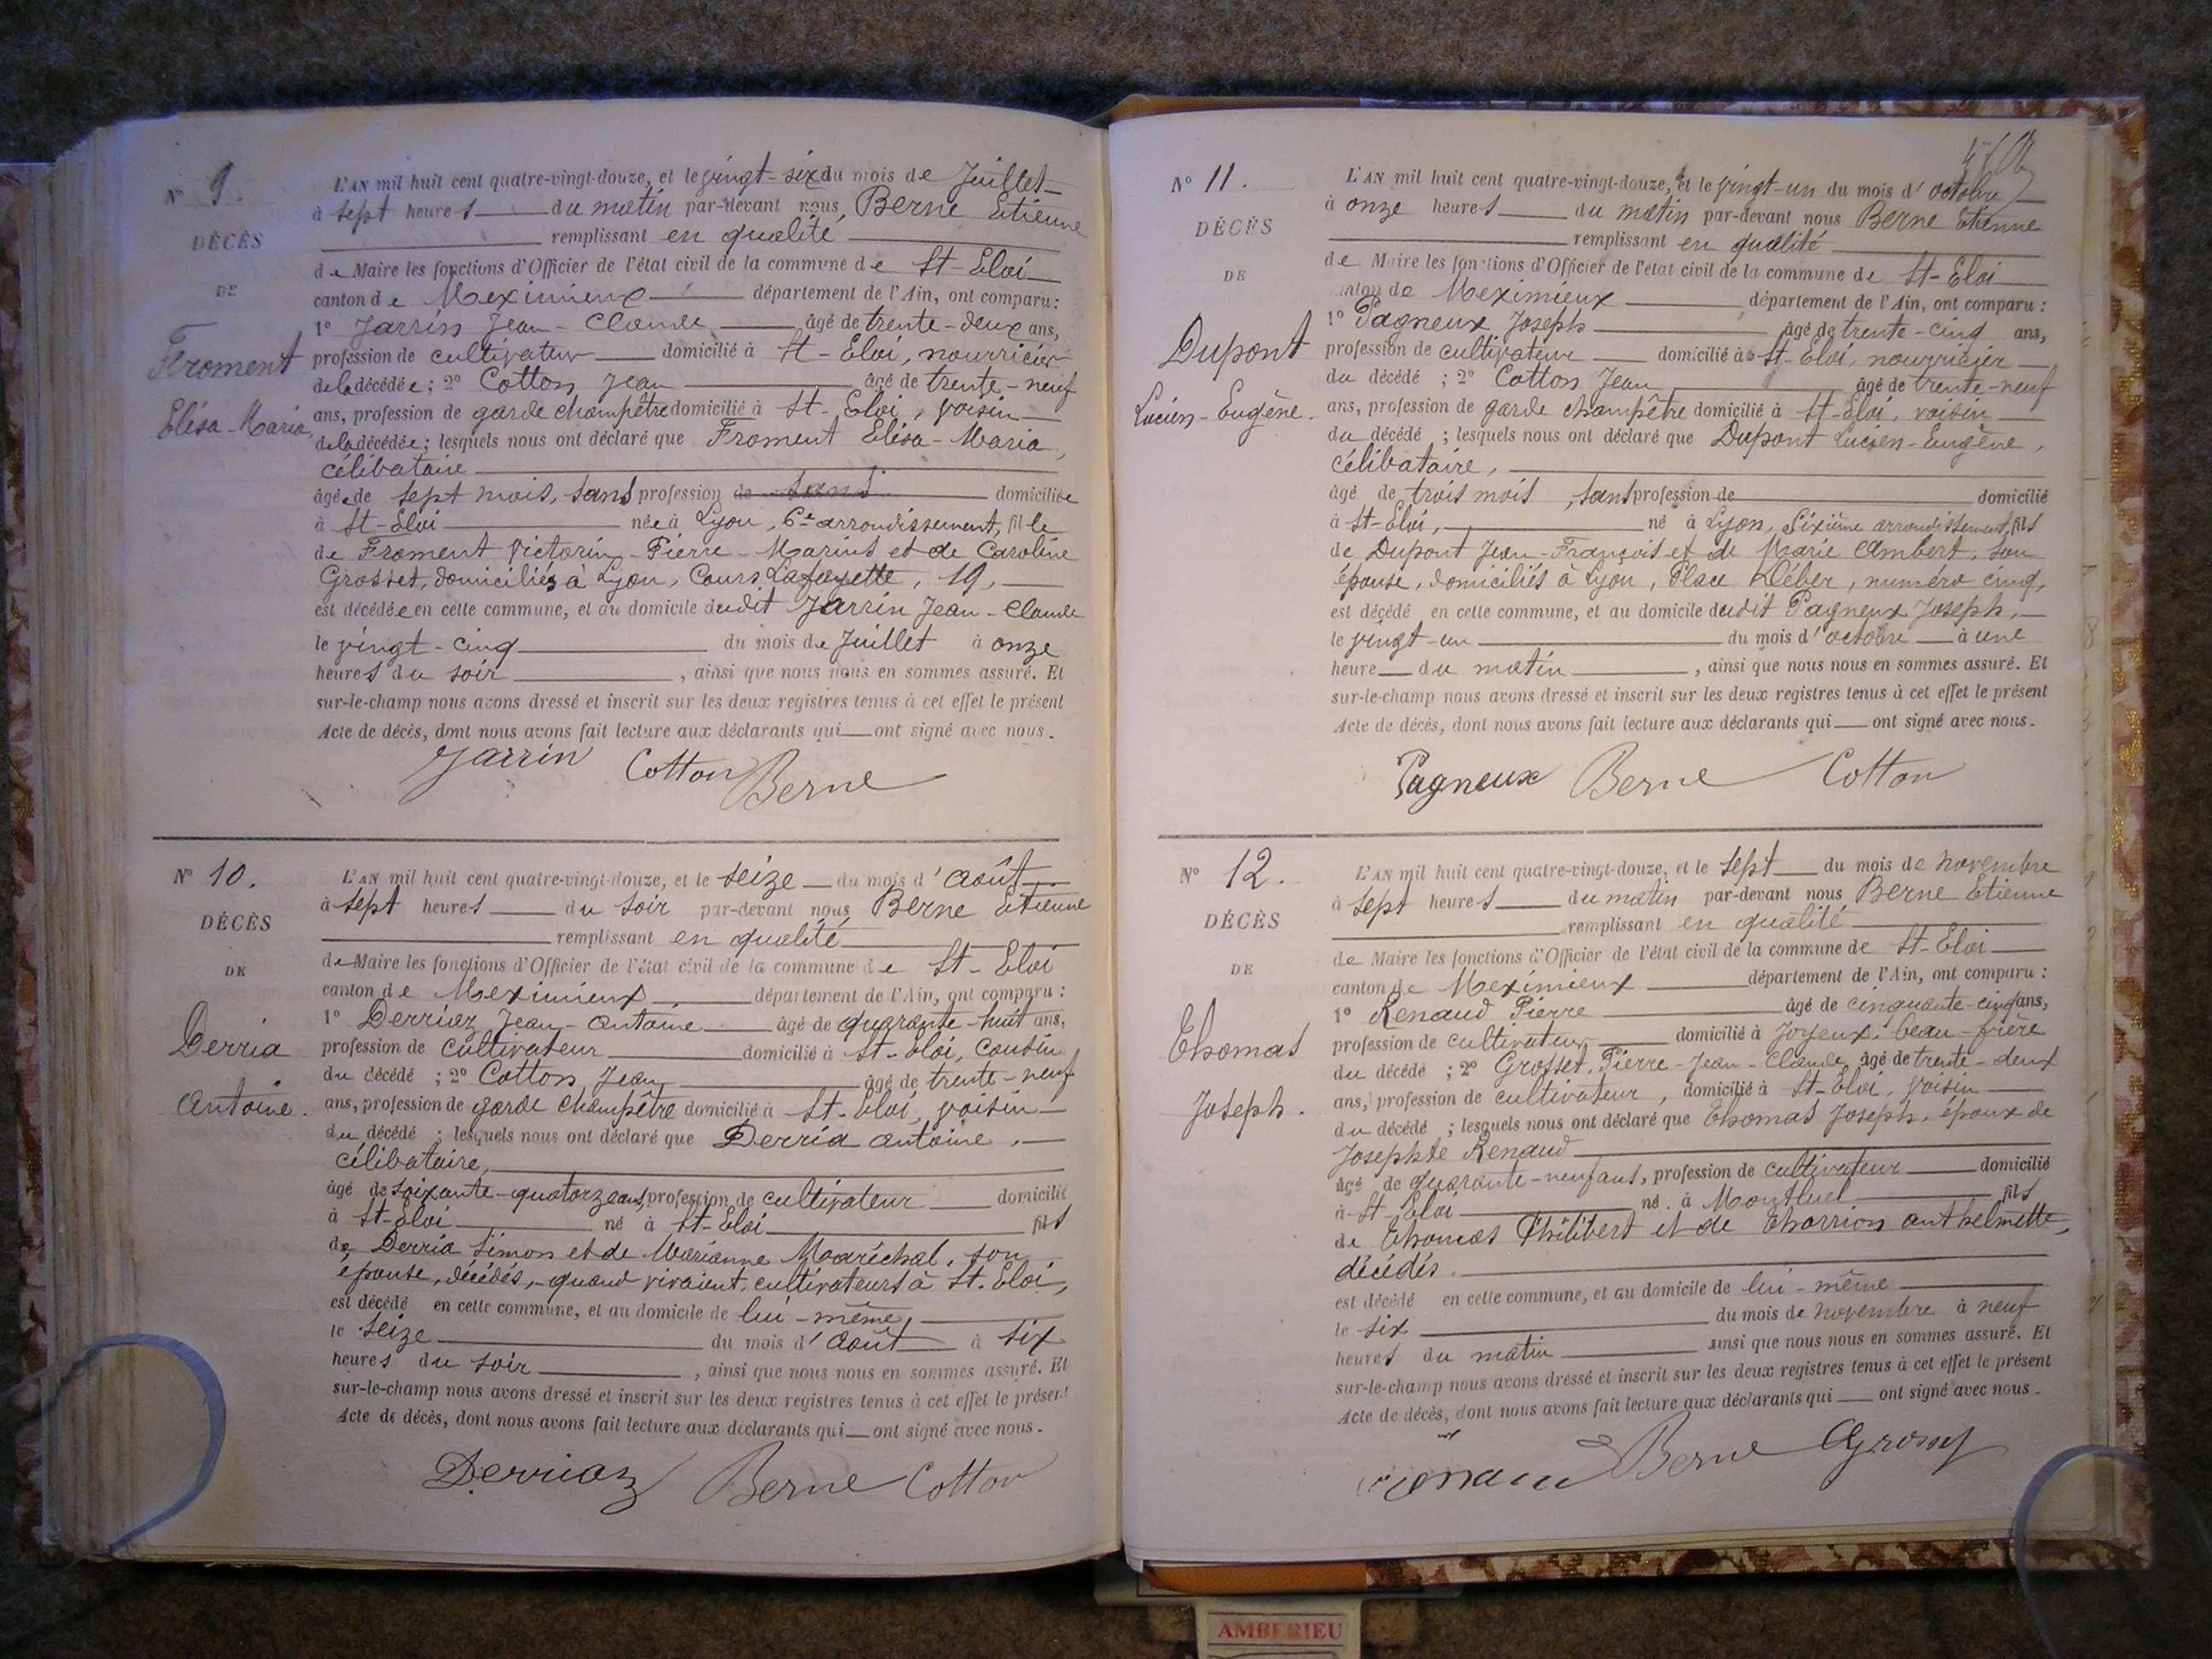 N° 9.
DÉCÈS
DE
Froment
Elisa-Maria
L'AN mil huit cent quatre-vingt-douze, et le vingt-six du mois de Juillet
à sept heures du matin par-devant nous Berne Etienne
remplissant en qualité
de Maire les fonctions d'Officier de l'état civil de la commune de St-Eloi
canton de Meximieux département de l'Ain, ont comparu :
1° Jarrin Jean-Claude âgé de trente-deux ans,
profession de cultivateur domicilié à St-Eloi, nourricier
de la décédée ; 2° Cotton Jean âgé de trente-neuf
ans, profession de garde champêtre domicilié à St-Eloi, voisin
de la décédée ; lesquels nous ont déclaré que Froment Elisa-Maria,
célibataire
âgée de sept mois, sans profession de sans domiciliée
à St-Eloi née à Lyon, 6e arrondissement, fille
de Froment Victorin-Pierre-Marius et de Caroline
Grosset, domiciliés à Lyon, Cours Lafayette, 19,
est décédée en cette commune, et au domicile dudit Jarrin Jean-Claude
le vingt-cinq du mois de Juillet à onze
heures du soir , ainsi que nous nous en sommes assuré. Et
sur-le-champ nous avons dressé et inscrit sur les deux registres tenus à cet effet le présent
Acte de décès, dont nous avons fait lecture aux déclarants qui ont signé avec nous.
Jarrin Cotton Berne
N° 10.
DÉCÈS
DE
Derria
Antoine.
L'AN mil huit cent quatre-vingt-douze, et le seize du mois d'août
à sept heures du soir par-devant nous Berne Etienne
remplissant en qualité
de Maire les fonctions d'Officier de l'état civil de la commune de St-Eloi
canton de Meximieux département de l'Ain, ont comparu :
1° Derriaz Jean-Antoine âgé de quarante-huit ans,
profession de cultivateur domicilié à St-Eloi, cousin
du décédé ; 2° Cotton Jean âgé de trente-neuf
ans, profession de garde champêtre domicilié à St-Eloi, voisin
du décédé ; lesquels nous ont déclaré que Derria Antoine,
célibataire,
âgé de soixante-quatorze ans, profession de cultivateur domicilié
à St-Eloi né à St-Eloi fils
de Derria Simon et de Marianne Maréchal, son
épouse, décédés, quand vivaient, cultivateurs à St-Eloi,
est décédé en cette commune, et au domicile de lui-même,
le seize du mois d'août à six
heures du soir , ainsi que nous nous en sommes assuré. Et
sur-le-champ nous avons dressé et inscrit sur les deux registres tenus à cet effet le présent
Acte de décès, dont nous avons fait lecture aux déclarants qui ont signé avec nous.
Derriaz Berne Cotton
N° 11.
DÉCÈS
DE
Dupont
Lucien-Eugène.
L'AN mil huit cent quatre-vingt-douze, et le vingt-un du mois d'octobre
à onze heures du matin par-devant nous Berne Etienne
remplissant en qualité
de Maire les fonctions d'Officier de l'état civil de la commune de St-Eloi
canton de Meximieux département de l'Ain, ont comparu :
1° Pagneux Joseph âgé de trente-cinq ans,
profession de cultivateur domicilié à St-Eloi, nourricier
du décédé ; 2° Cotton Jean âgé de trente-neuf
ans, profession de garde champêtre domicilié à St-Eloi, voisin
du décédé ; lesquels nous ont déclaré que Dupont Lucien-Eugène,
célibataire,
âgé de trois mois, sans profession de domicilié
à St-Eloi, né à Lyon, sixième arrondissement, fils
de Dupont Jean-François et de Marie Ambert, son
épouse, domiciliés à Lyon, Place Kléber, numéro cinq,
est décédé en cette commune, et au domicile dudit Pagneux Joseph,
le vingt-un du mois d'octobre à une
heure du matin , ainsi que nous nous en sommes assuré. Et
sur-le-champ nous avons dressé et inscrit sur les deux registres tenus à cet effet le présent
Acte de décès, dont nous avons fait lecture aux déclarants qui ont signé avec nous.
Pagneux Berne Cotton
N° 12.
DÉCÈS
DE
Thomas
Joseph.
L'AN mil huit cent quatre-vingt-douze, et le sept du mois de novembre
à sept heures du matin par-devant nous Berne Etienne
remplissant en qualité
de Maire les fonctions d'Officier de l'état civil de la commune de St-Eloi
canton de Meximieux département de l'Ain, ont comparu :
1° Renaud Pierre âgé de cinquante-cinq ans,
profession de cultivateur domicilié à Joyeux, beau-frère
du décédé ; 2° Grosset Pierre-Jean-Claude âgé de trente-deux
ans, profession de cultivateur, domicilié à St-Eloi, voisin
du décédé ; lesquels nous ont déclaré que Thomas Joseph, époux de
Josephte Renaud
âgé de quarante-neuf ans, profession de cultivateur domicilié
à St-Eloi né à Montluel fils
de Thomas Philibert et de Tharrion Anthelmette,
décédés.
est décédé en cette commune, et au domicile de lui-même
le six du mois de novembre à neuf
heures du matin ainsi que nous nous en sommes assuré. Et
sur-le-champ nous avons dressé et inscrit sur les deux registres tenus à cet effet le présent
Acte de décès, dont nous avons fait lecture aux déclarants qui ont signé avec nous.
Berne
AMBERIEU